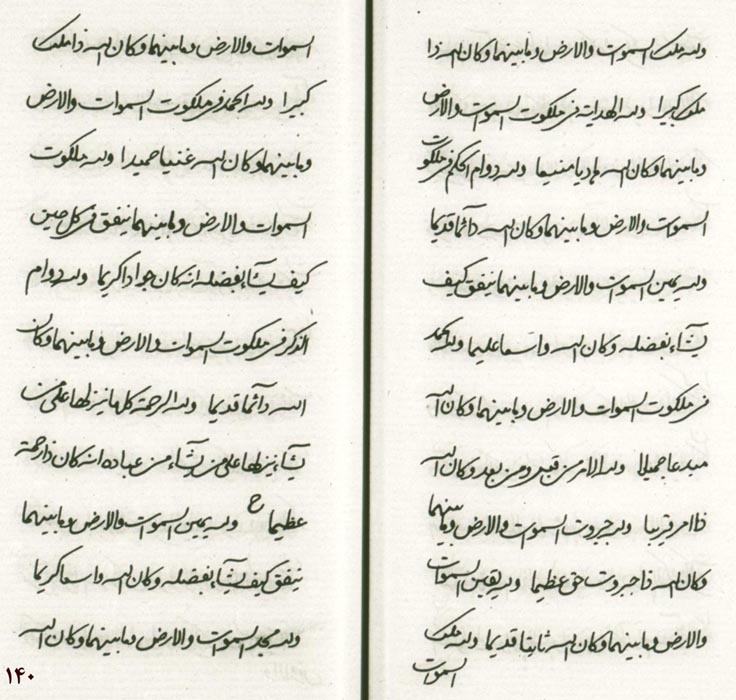 ولله ملك السموات والارض ومابينهما وكان الله ذا
ملك كبيرا ولله الهداية فى ملكوت السموات والارض
ومابينهما وكان الله هاديا منيعا ولله دوام الحكم فى ملكوت
السموات والارض ومابينهما وكان الله دآئما قديما
ولله يمين السموات والارض ومابينهما ينفق كيف
يشآء بفضله وكان الله واسعا عليما ولله الحمد
فى ملكوت السموات والارض ومابينهما وكان الله
مبدعا جميلا ولله الامر من قبل ومن بعد وكان الله
ذا امر قريبا ولله جبروت السموات والارض ومابينهما
وكان الله ذا جبروت حق عظيما ولله السموات
والارض ومابينهما وكان الله ثابتا قديما ولله ملك
السموات
السموات والارض ومابينهما وكان الله ذا ملك
كبيرا ولله الحمد فى ملكوت السموات والارض
ومابينهما وكان الله غنيا حميدا ولله ملكوت
السموات والارض ومابينهما ينفق فى كل حين
كيف يشآء بفضله انه كان جوادا كريما ولله دوام
الذكر فى ملكوت السموات والارض ومابينهما وكان
الله دآئما قديما ولله الرحمة كلها ينزلها على من
يشآء ينزلها على من يشآء من عباده انه كان ذا رحمة
عظيما ح ولله يمين السموات والارض ومابينهما
ينفق كيف يشآء بفضله وكان الله واسعا كريما
ولله مجد السموات والارض ومابينهما وكان الله
١٤٠